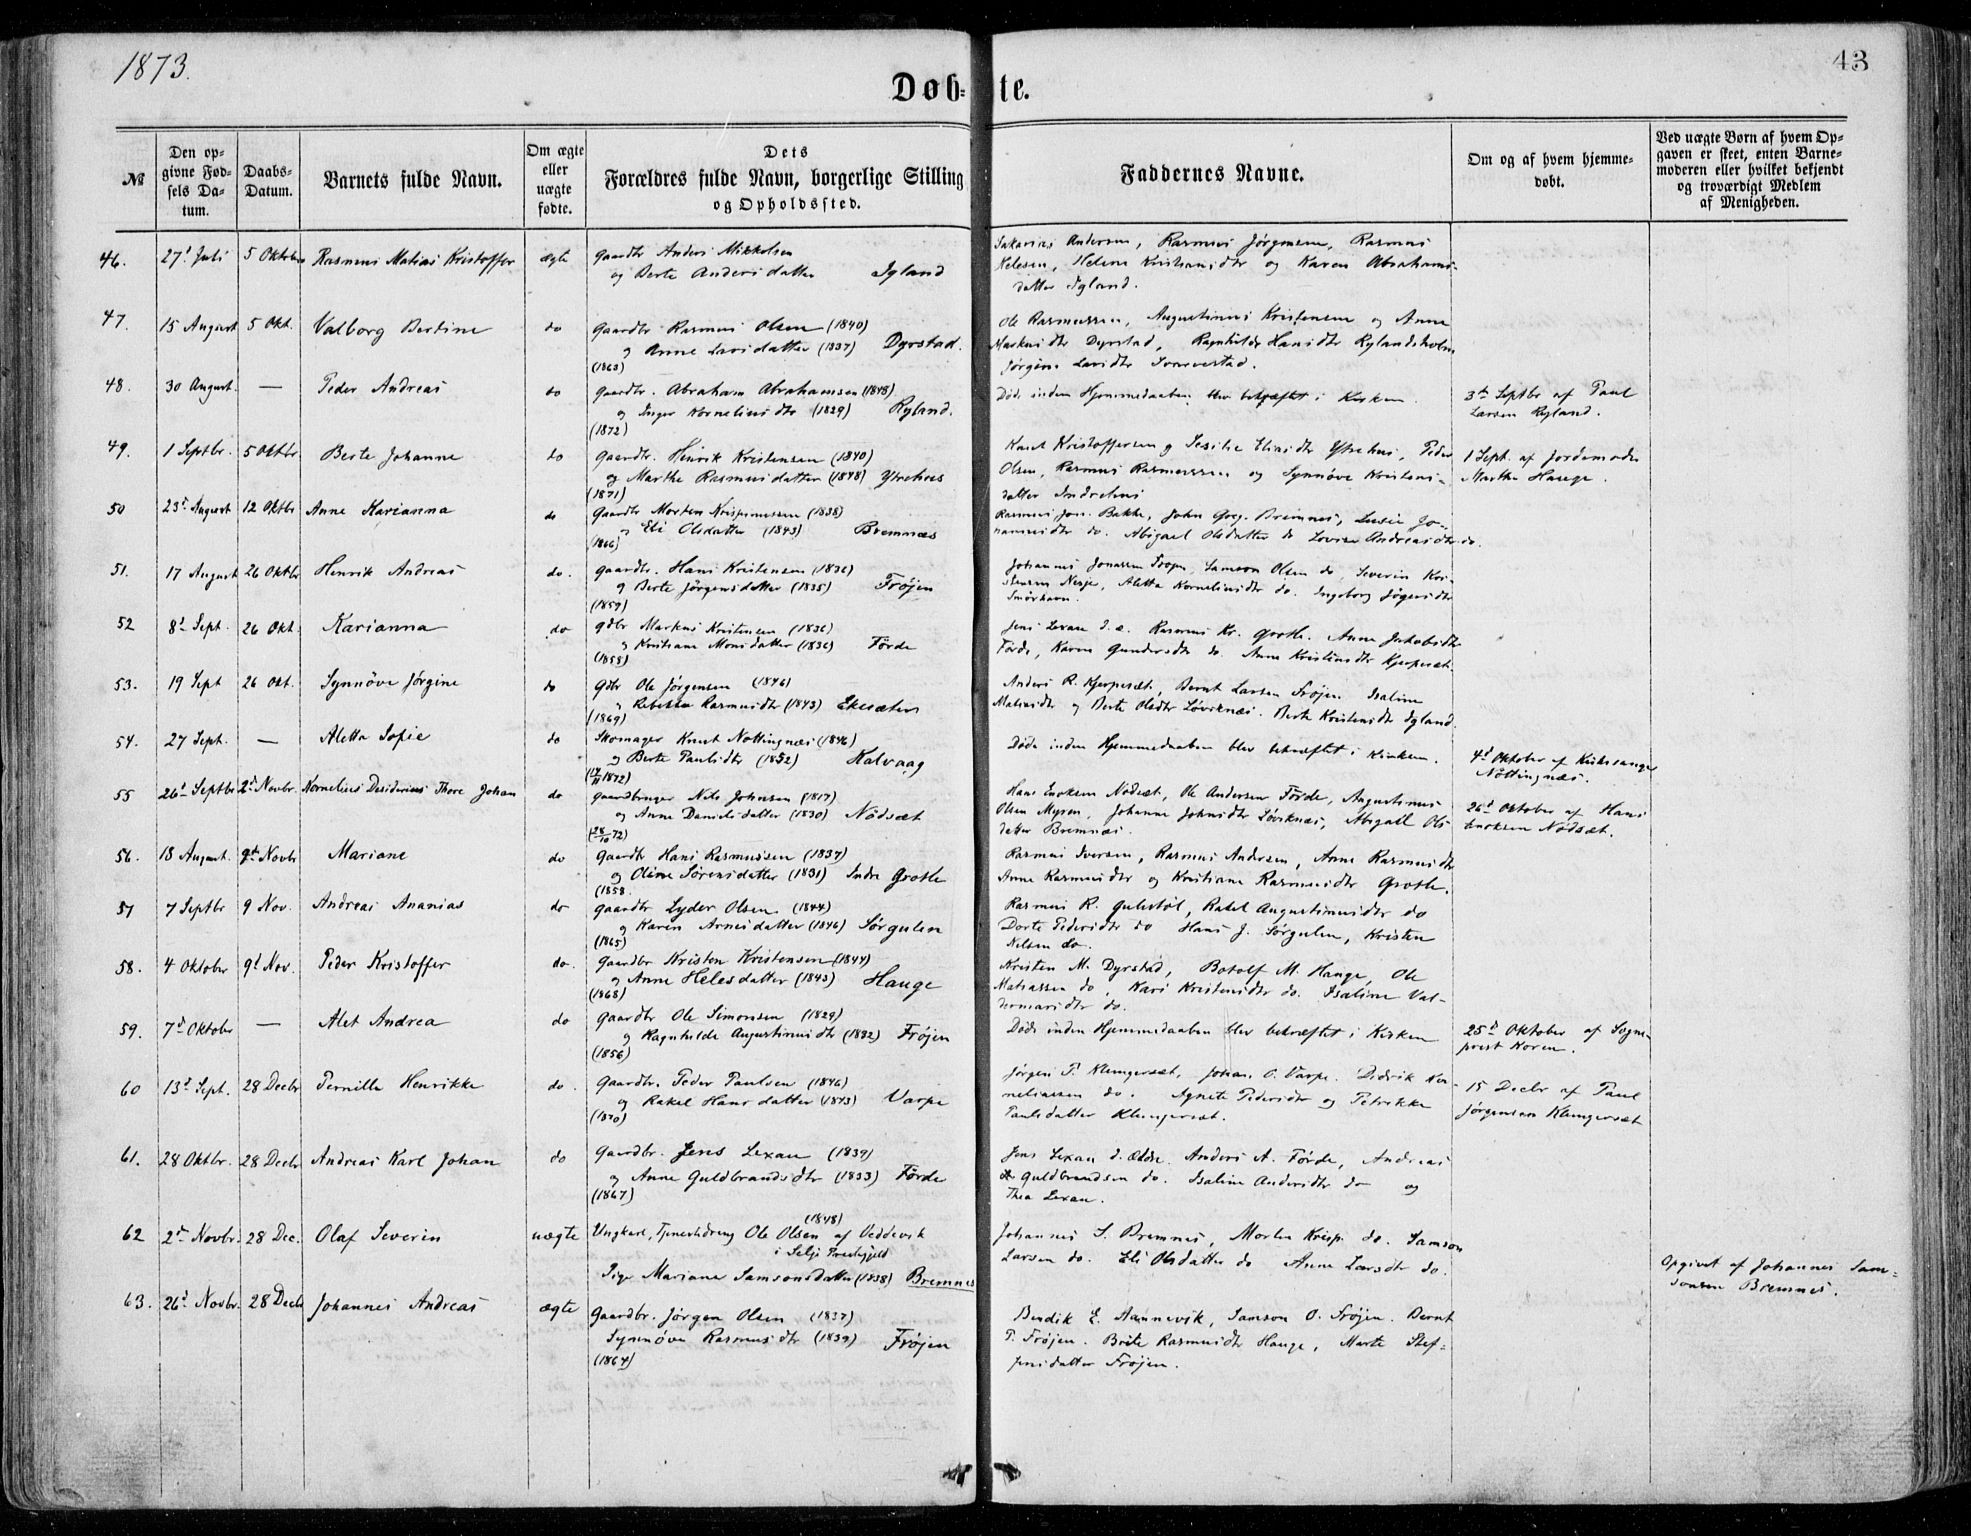 1873.
43
Døbte.
№
Den opgivne Fødsels Datum.
Daabs-Datum.
Barnets fulde Navn.
Om ægte eller uægte fødte.
Dets Forældres fulde Navn, borgerlige Stilling og Opholdssted.
Faddernes Navne.
Om og af hvem hjemmedøbt.
Ved uægte Børn af hvem Opgaven er skeet, enten Barnemoderen eller hvilket bekjendt og troværdigt Medlem af Menigheden.
46. 27d Juli 5 Oktober Rasmus Matias Kristoffer ægte Gaardbr Anders Mikkelsen
og Berte Andersdatter Igland
Sakarias Andersen, Rasmus Jørgensen, Rasmus
Helesen, Helene Kristiansdtr og Karen Abrahams-
datter Igland.
47. 15 August 5 Okt. Valborg Bertine do Gaardbr Rasmus Olsen (1840)
og Anne Larsdatter (1837) Dyrstad.
(1863)
Ole Rasmussen, Augustinus Kristensen og Anne
Markusdtr Dyrstad, Ragnhilde Hansdtr Rylandsholm
Jørgine Larsdtr
48. 30 August. — Peder Andreas do Gaardbr. Abraham Abrahamsen (1848)
og Inger Kornelius dtr (1829) Ryland.
(1872)
Døde inden Hjemmedaaben blev bekræftet i Kirken.
3de Septbr af Paul
Larsen Ryland.
49. 1 Septbr. 5 Oktbr Berte Johanne do Gaardbr. Henrik Kristensen (1840)
og Marthe Rasmusdatter (1848) Ytrehus
(1871)
Knut Kristoffersen og Sesilie Eliasdtr Ytrehus, Peder
Olsen, Rasmus Rasmussen og Synnøve Kristens-
datter Indrehus
1 Sept. af Jordemoder
Marthe Hauge.
50 23d August 12 Oktbr Anne Karianna do Gaardbr Morten Krispinussen (1838)
og Eli Olsdatter (1843) Bremnæs
(1866)
Rasmus Jon. Bakke, John Greg. Bremnes, Lusie Jo-
hannesdtr do. Abigael Olsdatter do Lovise Andreasdtr do.
51. 17 August 26 Oktbr Henrik Andreas do. Gaardbr. Hans Kristensen (1836)
og Berte Jørgensdatter (1835) Frøjen
(1859)
Johannes Jonassen Frøjen, Samson Olsen do, Severin Kri-
stensen Nesje, Aletta Korneliusdtr do. Ingeborg Jøgensdtr
Smørhavn.
52 8d Sept. 26 Okt. Karianna do Gdbr Markus Kristensen (1836)
og Kristiane Monsdatter (1836) Førde
(1858)
Jens Lexau d. æ. Rasmus Kr. Grotle. Anne Jakobsdtr
Førde, Karen Gundersdtr do. Anne Kristensdtr Hjerpesæt.
53. 19 Sept 26 Okt. Synnøve Jørgine do Gdbr Ole Jørgensen (1846)
og Rebekka Rasmusdtr (1843) Ekesæter
(1869)
Anders R. Hjerpesæt, Bernt Larsen Frøjen Isaline
Matiasdtr og Berte Olsdtr Løviknæs. Berte Kristensdtr Igland.
54. 27 Sept. — Aletta Sofie do Skomager Knut Nøttingnæs (1846)
og Berte Paulsdtr (1852) Kalvaag
(14/11 1872)
Døde inden Hjemmedaaben blev bekræftet i Kirken.
4d Oktober af Kirkesanger
Nøttingnæs.
55 26d Septbr 2d Novbr. Kornelius Desiderius Thore Johan do Gaardbruger Nils Johnsen (1817)
og Anne Danielsdatter (1830) Nødsæt
(28/10 72)
Hans Enoksen Nødsæt, Ole Andersen Førde, Augustinus
Olsen Myren, Johanne Johnsdtr Løviknæs, Abigall Ols-
datter Bremnæs.
26d Oktober af Hans
Enoksen Nødsæt.
56. 18 August. 9de Novbr Mariane do Gaardbr Hans Rasmussen (1837)
og Oline Sørensdatter (1831) Indre Grotle
(1858
Rasmus Iversen, Rasmus Andersen, Anne Rasmusdtr
Anne Rasmusdtr og Kristiane Rasmusdtr Grotle.
57 7 Septbr 9 Nov. Andreas Ananias do Gaardbr Lyder Olsen (1844)
og Karen Arnesdatter (1846) Sørgulen
(1865)
Rasmus R. Gulestøl, Rakel Augustinusdtr do
Dorte Pedersdtr do Hans J. Sørgulen, Kristen
Nelsen do.
58. 4 Oktober 9d Nov. Peder Kristoffer do. Gaardbr Kristen Kristensen (1844)
og Anne Helesdatter (1843) Hauge
(1868)
Kristen M. Dyrstad, Botolf M. Hauge, Ole
Matiassen do, Kari Kristensdtr do. Isaline Val-
demarsdtr do.
59. 7d Oktober — Alet Andrea do Gaardbr Ole Simonsen (1829)
og Ragnhilde Augustinusdtr (1832) Frøjen
(1856)
Døde inden Hjemmedaaben blev bekræftet i Kirken
25d Oktober af Sogne-
prest Koren.
60 13d Sept. 28 Decbr Pernille Henrikke do. Gaardbr. Peder Paulsen (1846)
og Rakel Hansdatter (1843) Varpe
(1870)
Jørgen P. Klungersæt, Johan O. Varpe. Didrik Kor-
neliussen do. Agnete Pedersdtr og Petrikke
Paulsdatter Klungersæt.
15 Decbr af Paul
Jørgensen Klungersæt
61. 28 Oktbr. 28 Decbr Andreas Karl Johan do Gaardbr. Jens Lexau (1839)
og Anne Guldbrandsdtr (1833) Førde
(1867)
Jens Lexau d. Ældre. Anders A. Førde, Andreas
Guldbrandsen do. Isaline Andersdtr do og
Thea Lexau.
62 2d Novbr. 28 Dec. Olaf Severin uægte Ungkarl, Tjenestedreng Ole Olsen (1848) af Veddevik
i Selje Prestegjeld
Pige Mariane Samsonsdatter (1838) Bremnes
Johannes S. Bremnes, Morten Krisp. do. Samson
Larsen do. Eli Olsdatter do Anne Larsdtr do.
Opgivet af Johannes Sam-
sonsen Bremnes.
63. 26d Novbr. 28 Decbr Johannes Andreas ægte Gaardbr. Jørgen Olsen (1837)
Synnøve Rasmusdtr (1839) Frøjen
(1864)
Bendik E. Hannevik, Samson O. Frøjen. Bernt
P. Frøjen. Brite Rasmusdtr Hauge, Marte Stef-
fensdatter Frøjen.